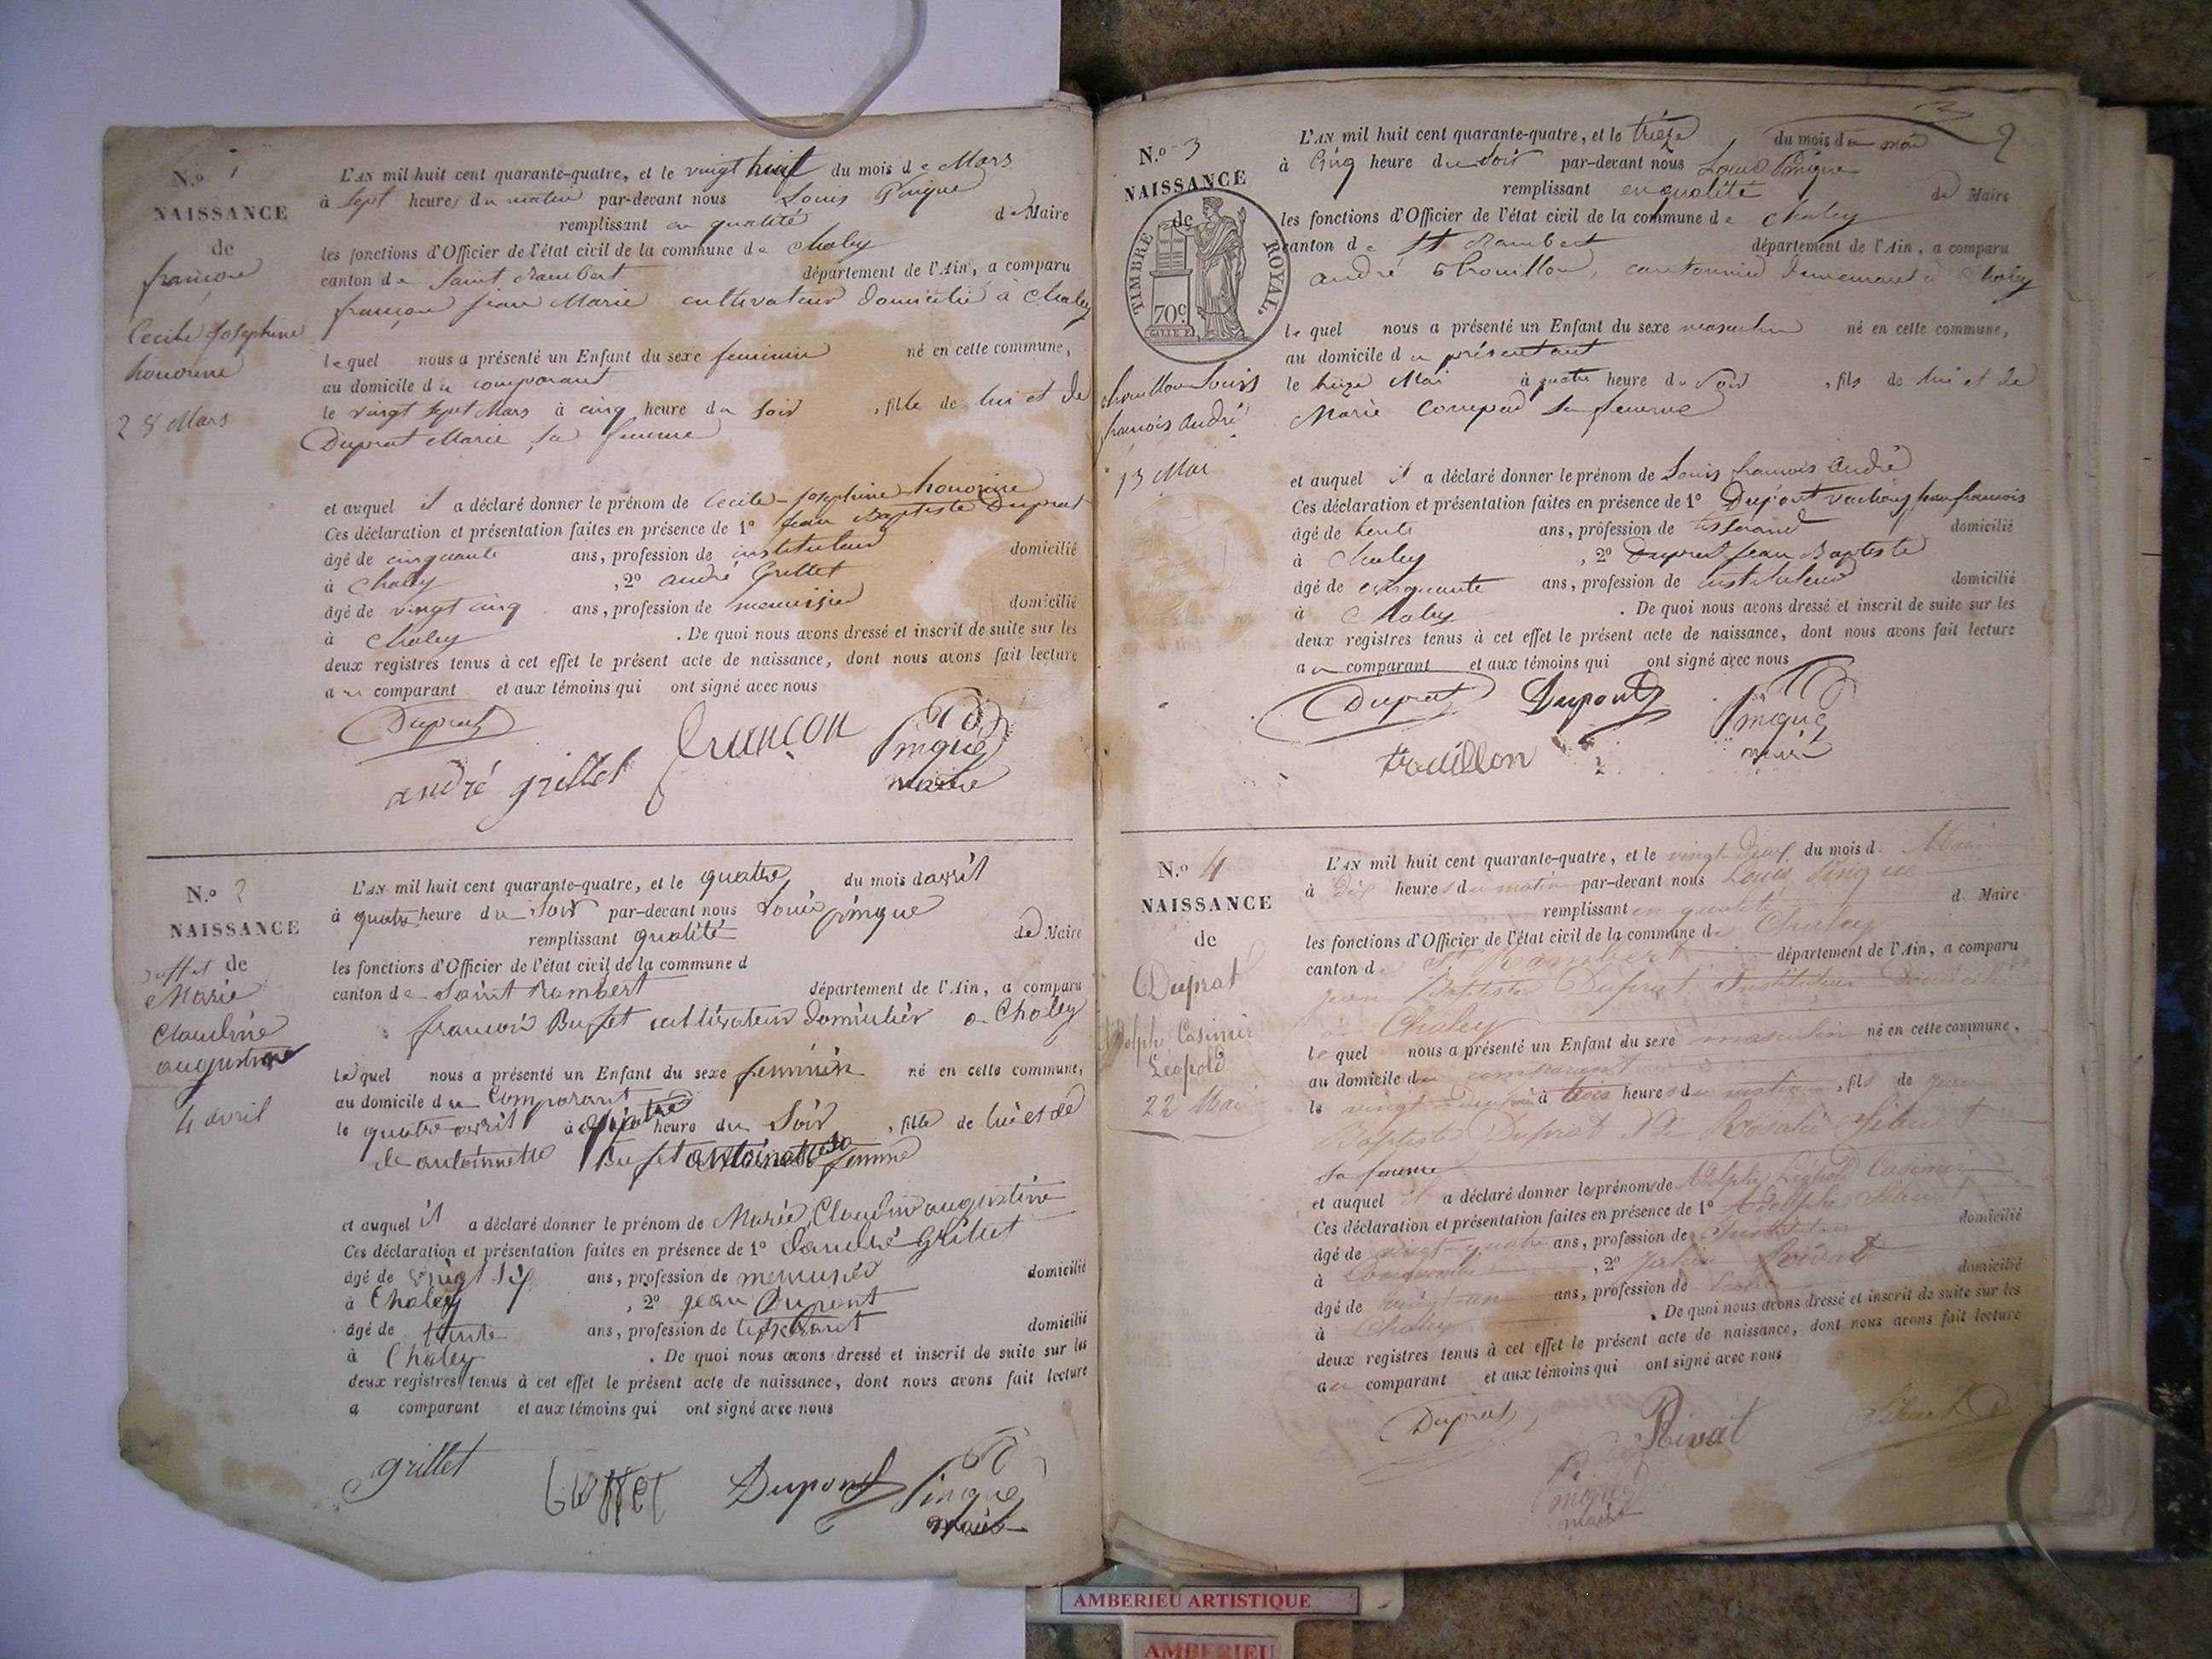 N.o 1
NAISSANCE
de
françon
Cecile Josephine
honorine
28 Mars
L'AN mil huit cent quarante-quatre, et le vingt huit du mois de Mars
à sept heures du matin par-devant nous Louis Pingue
remplissant en qualité de Maire
les fonctions d'Officier de l'état civil de la commune de Chaley
canton de Saint Rambert département de l'Ain, a comparu
françon jean Marie cultivateur domicilié à Chaley
lequel nous a présenté un Enfant du sexe feminin né en cette commune,
au domicile du comparant
le vingt sept Mars à cinq heure du soir, fille de lui et de
Duprat Marie sa femme
et auquel il a déclaré donner le prénom de Cecile-Josephine honorine
Ces déclaration et présentation faites en présence de 1º jean Baptiste Duprat
âgé de cinquante ans, profession de instituteur domicilié
à Chaley, 2º andré Grillet
âgé de vingt cinq ans, profession de menuisier domicilié
à Chaley. De quoi nous avons dressé et inscrit de suite sur les
deux registres tenus à cet effet le présent acte de naissance, dont nous avons fait lecture
au comparant et aux témoins qui ont signé avec nous
Duprat
françon
Pingue
andré grillet
maire
N.o 2
NAISSANCE
de
Marie
Claudine
augustine
4 avril
L'AN mil huit cent quarante-quatre, et le quatre du mois d avril
à quatre heure du soir par-devant nous Louis pingue
remplissant qualité de Maire
les fonctions d'Officier de l'état civil de la commune d
canton de Saint Rambert département de l'Ain, a comparu
francois Buffet cultivateur domicilier a Chaley
lequel nous a présenté un Enfant du sexe feminin né en cette commune,
au domicile du Comparant
le quatre avril à quatre heure du Soir, fille de lui et de
de antoinette Buffet femme
et auquel il a déclaré donner le prénom de Marie Claudine augustine
Ces déclaration et présentation faites en présence de 1º dandré Grillet
âgé de vingt six ans, profession de menusier domicilié
à Chaley, 2º jean Dupont
âgé de trente ans, profession de domicilié
à Chaley. De quoi nous avons dressé et inscrit de suite sur les
deux registres tenus à cet effet le présent acte de naissance, dont nous avons fait lecture
a comparant et aux témoins qui ont signé avec nous
grillet
buffet
Dupont
Pingue
maire
N.o 3
NAISSANCE
de
TIMBRE ROYAL.
70c.
Louis
francois André
13 Mai
L'AN mil huit cent quarante-quatre, et le treize du mois de mai
à cinq heure du soir par-devant nous Louis Pingue
remplissant en qualité de Maire
les fonctions d'Officier de l'état civil de la commune de Chaley
canton de St Rambert département de l'Ain, a comparu
andré cantonnier demeurant à Chaley
lequel nous a présenté un Enfant du sexe masculin né en cette commune,
au domicile du présentant
le treize Mai à quatre heure du Soir, fils de lui et de
Marie sa femme
et auquel il a déclaré donner le prénom de Louis francois André
Ces déclaration et présentation faites en présence de 1º Dupont jean francois
âgé de trente ans, profession de tisserand domicilié
à Chaley, 2º Duprat jean Baptiste
âgé de cinquante ans, profession de instituteur domicilié
à Chaley. De quoi nous avons dressé et inscrit de suite sur les
deux registres tenus à cet effet le présent acte de naissance, dont nous avons fait lecture
au comparant et aux témoins qui ont signé avec nous
Duprat
Dupont
Pingue
trouillon
maire
N.o 4
NAISSANCE
de
Duprat
Adolphe Casimir
Léopold
22 Mai
L'AN mil huit cent quarante-quatre, et le vingt-deux du mois d Mai
à dix heures du matin par-devant nous Louis Pingue
remplissant en qualité de Maire
les fonctions d'Officier de l'état civil de la commune de Chaley
canton de St Rambert département de l'Ain, a comparu
jean Baptiste Duprat Instituteur Domicilié
à Chaley
lequel nous a présenté un Enfant du sexe masculin né en cette commune,
au domicile du comparant
le vingt-deux à trois heures du matin, fils de jean
Baptiste Duprat & de Rosalie
sa femme
et auquel il a déclaré donner le prénom de Adolphe Léopold Casimir
Ces déclaration et présentation faites en présence de 1º Adolphe
âgé de vingt-quatre ans, profession de Instituteur domicilié
à, 2º
âgé de vingt-un ans, profession de domicilié
à Chaley. De quoi nous avons dressé et inscrit de suite sur les
deux registres tenus à cet effet le présent acte de naissance, dont nous avons fait lecture
au comparant et aux témoins qui ont signé avec nous
Duprat
Rivat
Pingue
maire
AMBERIEU ARTISTIQUE
AMBERIEU